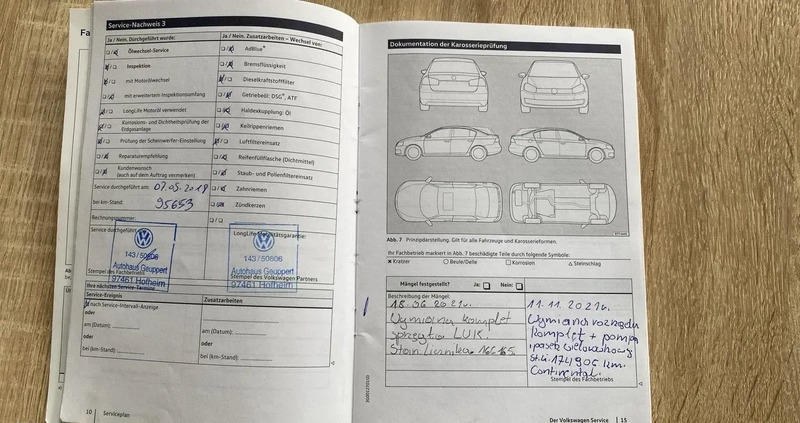 Service-Nachweis 3
Ja / Nein. Durchgeführt wurde:
Ölwechsel-Service
Inspektion
mit Motorölwechsel
mit erweitertem Inspektionsumfang
LongLife Motoröl verwendet
Korrosions- und Dichtheitsprüfung der
Erdgasanlage
Prüfung der Scheinwerfer-Einstellung
Reparaturempfehlung
Kundenwunsch
(auch auf dem Auftrag vermerken)
Service durchgeführt am: 07.05.2019
bei km-Stand: 95653
Rechnungsnummer:
Service durchgeführt
143/50806
Autohaus Geuppert
Stempel des Fachbetriebs
97461 Hofheim
Ja / Nein. Zusatzarbeiten – Wechsel von:
AdBlue®
Bremsflüssigkeit
Dieselkraftstofffilter
Getriebeöl: DSG®, ATF
Haldexkupplung: Öl
Keilrippenriemen
Luftfiltereinsatz
Reifenfüllflasche (Dichtmittel)
Staub- und Pollenfiltereinsatz
Zahnriemen
Zündkerzen
LongLife Mobilitätsgarantie:
143/50806
Autohaus Geuppert
Stempel des Volkswagen Partners
97461 Hofheim
Ihre nächsten Service-Termine
Service-Ereignis
nach Service-Intervall-Anzeige
oder
am (Datum):
oder
bei (km-Stand):
Zusatzarbeiten
am (Datum):
oder
bei (km-Stand):
10 Serviceplan
Dokumentation der Karosserieprüfung
Abb. 7 Prinzipdarstellung. Gilt für alle Fahrzeuge und Karosserieformen.
Ihr Fachbetrieb markiert in Abb. 7 beschädigte Teile durch folgende Symbole:
× Kratzer ○ Beule/Delle □ Korrosion △ Steinschlag
Mängel festgestellt? Ja: Nein:
Beschreibung der Mängel:
18.06.2021r.
Wymiana komplet
sprzęgła LUK.
11.11.2021r.
Wymiana rozrządu
komplet + pompa
i paska wielorowkowy
174906 km.
Continental.
Stempel des Fachbetriebs
Der Volkswagen Service 15